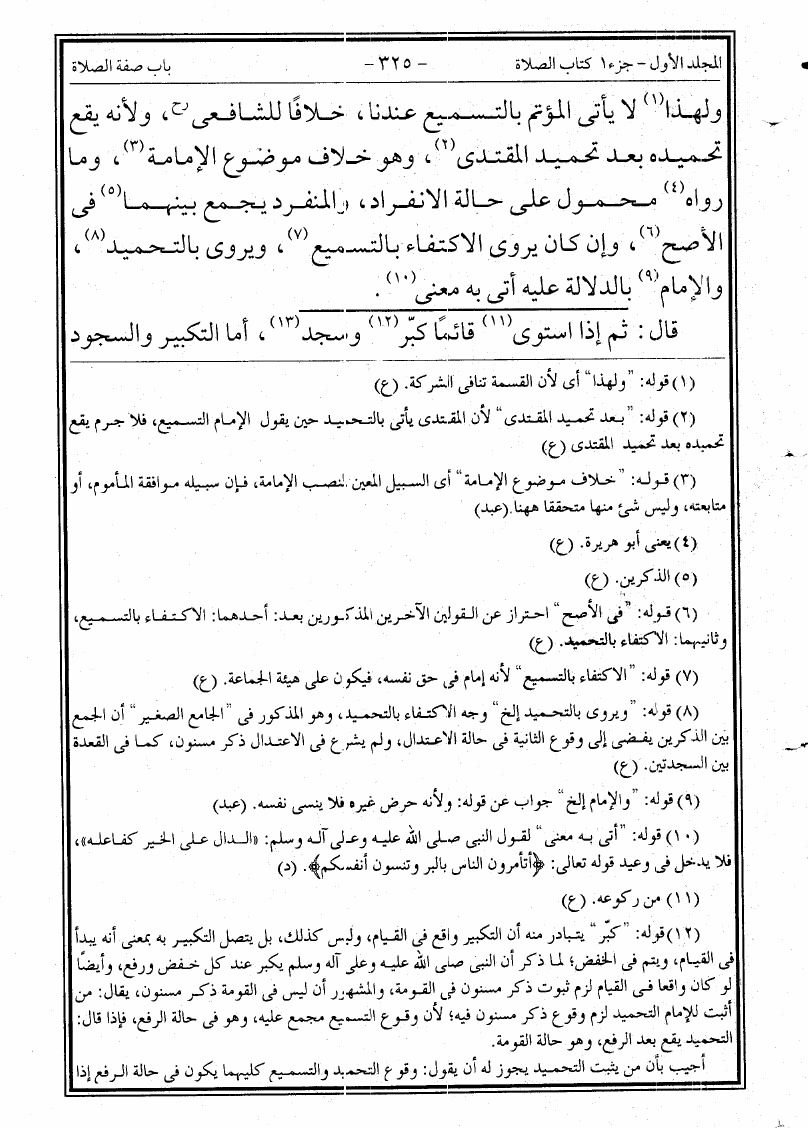 المجلد الأول – جزء ١ كتاب الصلاة – ٣٢٥ – باب صفة الصلاة
ولهذا(١) لا يأتى المؤتم بالتسميع عندنا، خلافًا للشافعى رح، ولأنه يقع
تحميده بعد تحميد المقتدى(٢)، وهو خلاف موضوع الإمامة(٣)، وما
رواه(٤) محمول على حالة الانفراد، والمنفرد يجمع بينهما(٥) فى
الأصح(٦)، وإن كان يروى الاكتفاء بالتسميع(٧)، ويروى بالتحميد(٨)،
والإمام(٩) بالدلالة عليه أتى به معنى(١٠).
قال: ثم إذا استوى(١١) قائمًا كبّر(١٢) وسجد(١٣)، أما التكبير والسجود
(١) قوله: "ولهذا" أى لأن القسمة تنافى الشركة. (ع)
(٢) قوله: "بعد تحميد المقتدى" لأن المقتدى يأتى بالتحميد حين يقول الإمام التسميع، فلا جرم يقع
تحميده بعد تحميد المقتدى (ع)
(٣) قوله: "خلاف موضوع الإمامة" أى السبيل المعين لنصب الإمامة، فإن سبيله موافقة المأموم، أو
متابعته، وليس شئ منها متحققا ههنا.(عبد)
(٤) يعنى أبو هريرة. (ع)
(٥) الذكرين. (ع)
(٦) قوله: "فى الأصح" احتراز عن القولين الآخرين المذكورين بعد: أحدهما: الاكتفاء بالتسميع،
وثانيهما: الاكتفاء بالتحميد. (ع)
(٧) قوله: "الاكتفاء بالتسميع" لأنه إمام فى حق نفسه، فيكون على هيئة الجماعة. (ع)
(٨) قوله: "ويروى بالتحميد إلخ" وجه الاكتفاء بالتحميد، وهو المذكور فى "الجامع الصغير" أن الجمع
بين الذكرين يفضى إلى وقوع الثانية فى حالة الاعتدال، ولم يشرع فى الاعتدال ذكر مسنون، كما فى القعدة
بين السجدتين. (ع)
(٩) قوله: "والإمام إلخ" جواب عن قوله: ولأنه حرض غيره فلا ينسى نفسه. (عبد)
(١٠) قوله: "أتى به معنى" لقول النبى صلى الله عليه وعلى آله وسلم: «الدال على الخير كفاعله»،
فلا يدخل فى وعيد قوله تعالى: ﴿أتأمرون الناس بالبر وتنسون أنفسكم﴾. (د)
(١١) من ركوعه. (ع)
(١٢) قوله: "كبّر" يتبادر منه أن التكبير واقع فى القيام، وليس كذلك، بل يتصل التكبير به بمعنى أنه يبدأ
فى القيام، ويتم فى الخفض؛ لما ذكر أن النبى صلى الله عليه وعلى آله وسلم يكبر عند كل خفض ورفع، وأيضًا
لو كان واقعا فى القيام لزم ثبوت ذكر مسنون فى القومة، والمشهور أن ليس فى القومة ذكر مسنون، يقال: من
أثبت للإمام التحميد لزم وقوع ذكر مسنون فيه؛ لأن وقوع التسميع مجمع عليه، وهو فى حالة الرفع، فإذا قال:
التحميد يقع بعد الرفع، وهو حالة القومة.
أجيب بأن من يثبت التحميد يجوز له أن يقول: وقوع التحميد والتسميع كليهما يكون فى حالة الرفع إذا